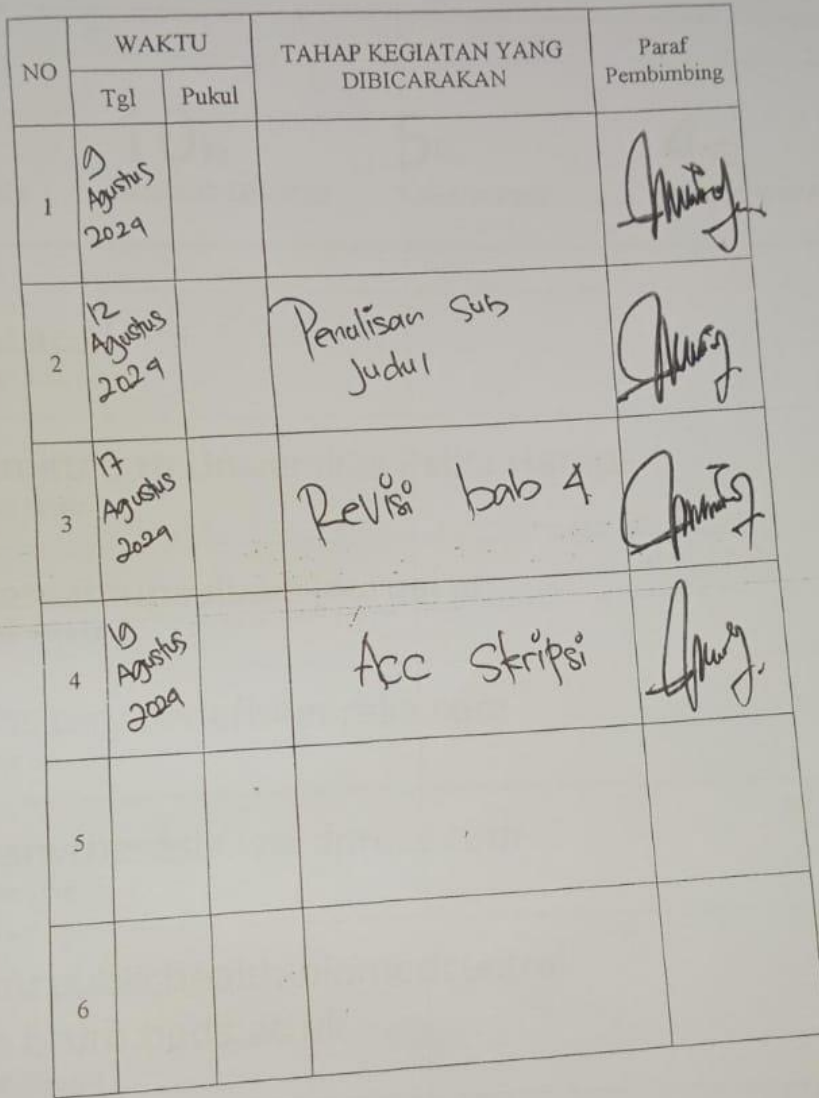 NO
WAKTU
TAHAP KEGIATAN YANG
DIBICARAKAN
Paraf
Pembimbing
Tgl
Pukul
1
9
Agustus
2024
2
12
Agustus
2024
Penulisan Sub
Judul
3
17
Agustus
2024
Revisi bab 4
4
19
Agustus
2024
Acc Skripsi
5
6